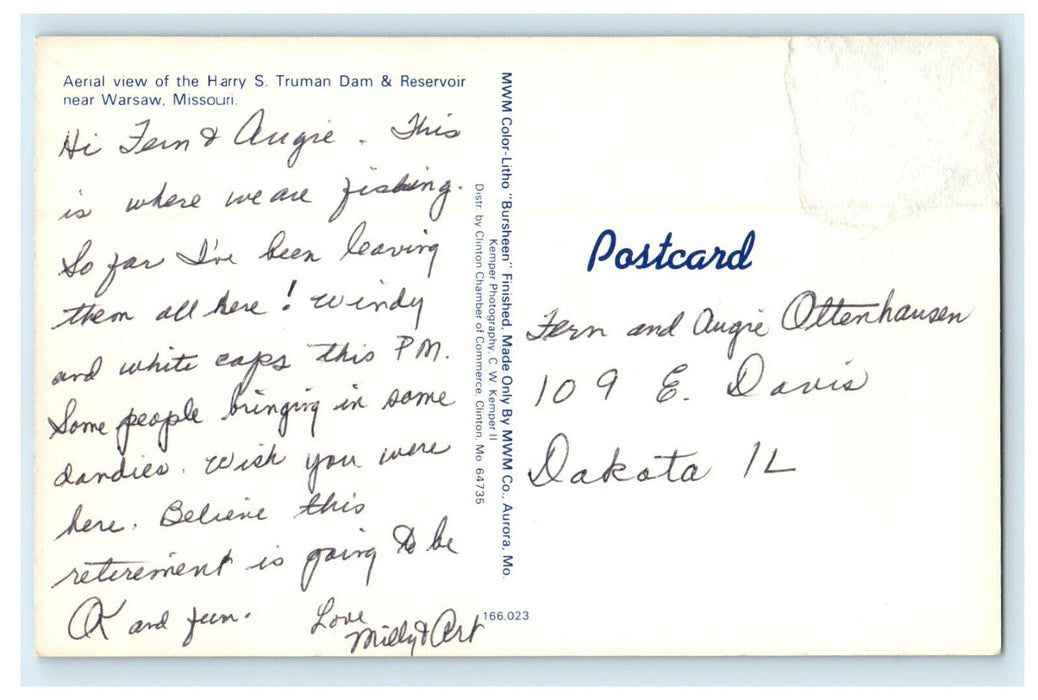 Aerial view of the Harry S. Truman Dam & Reservoir
near Warsaw, Missouri.
Hi Fern & Augie. This
is where we are fishing.
So far I've been leaving
them all here! Windy
and white caps this PM.
Some people bringing in some
dandies. Wish you were
here. Believe this
retirement is going to be
OK and fun.
Love
Milly & Art
MWM Color-Litho "Bursheen" Finished, Made Only By MWM Co., Aurora, Mo.
Kemper Photography, C. W. Kemper II
Distr. by Clinton Chamber of Commerce, Clinton, Mo 64735
166,023
Postcard
Fern and Augie Ottenhausen
109 E. Davis
Dakota IL